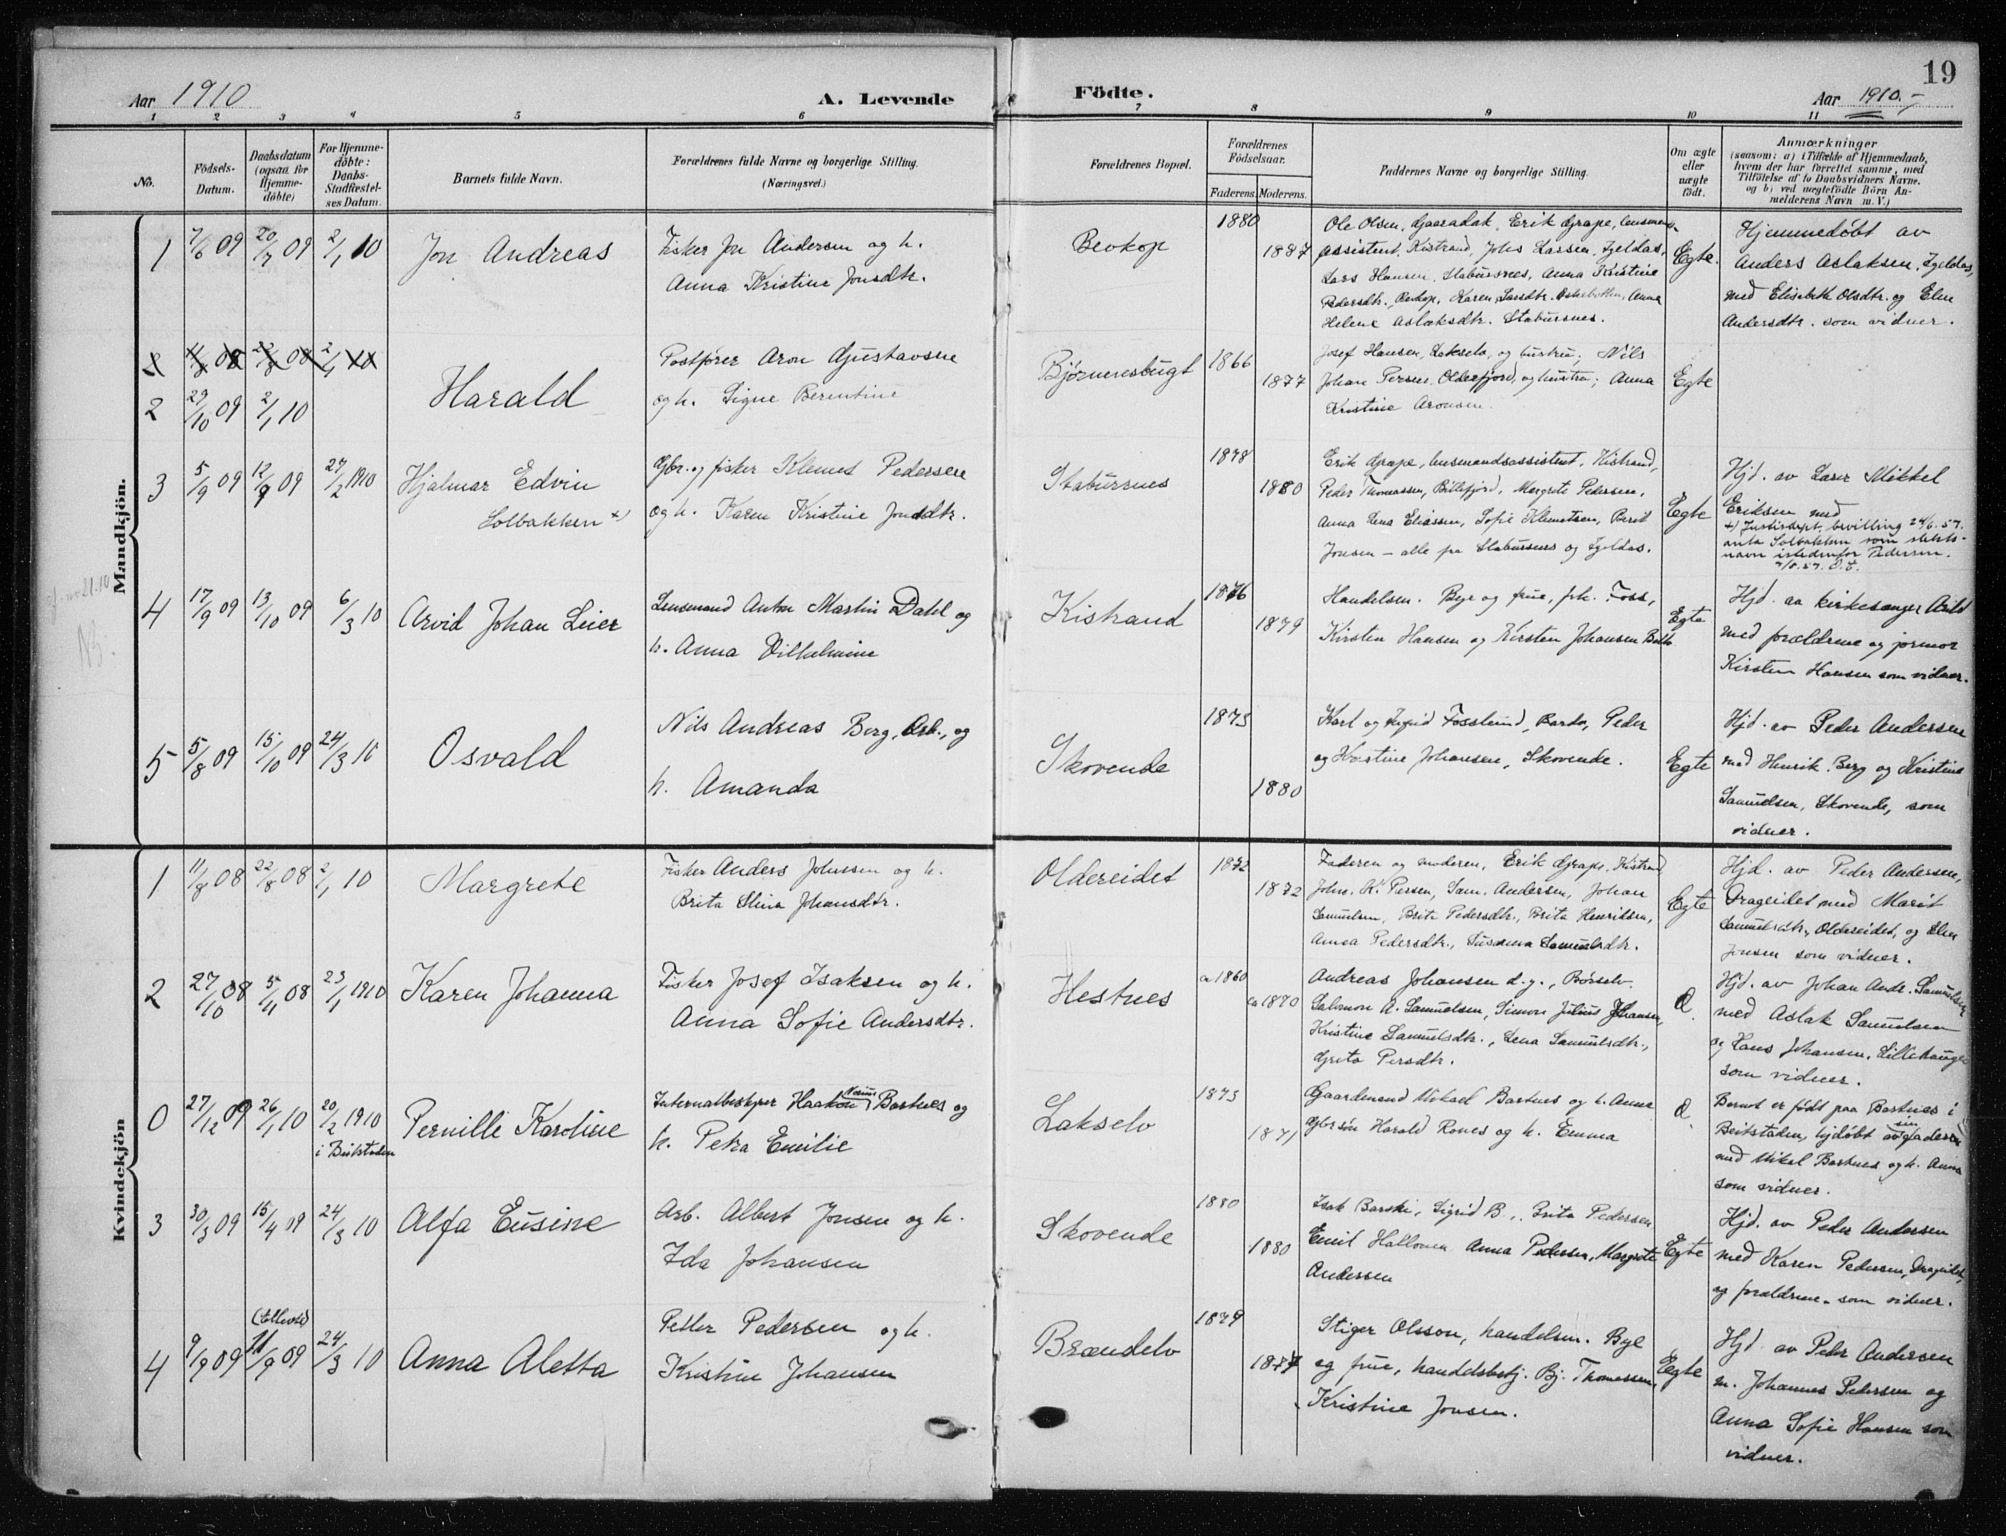 19
Aar 1910
A. Levende
Födte.
Aar 1910.-
1 2 3 4 5 6 7 8 9 10 11
No.
Födsels-
Datum.
Daabsdatum
(ogsaa for
Hjemme-
döbte)
For Hjemme-
döbte:
Daabs-
Stadfæstel-
ses Datum.
Barnets fulde Navn.
Forældrenes fulde Navne og borgerlige Stilling.
(Næringsvei.)
Forældrenes Bopæl.
Forældrenes
Födselsaar.
Faderens. Moderens.
Faddernes Navne og borgerlige Stilling.
Om ægte
eller
uægte
födt.
Anmærkninger
(saasom: a) i Tilfælde af Hjemmedaab,
hvem der har forrettet samme, med
Tilföielse af to Daabsvidners Navne.
og b) ved uægtefödte Börn An-
melderens Navn m. V.)
Mandkjön.
1 7/6 09 20/7 09 2/1 10
Jon Andreas
Fisker Jon Andersen og h.
Anna Kristine Jonsdtr.
Bevkop
1880
1887
Ole Olsen, Gaaradak, Erik Grape, lensmands-
assistent, Kistrand, Johs Larsen, Igeldas,
Lars Hansen, Stabursnes, Anna Kristine
Pedersdtr. Bevkop, Karen Larsdtr. Oskarbotten, Anna
Helene Aslaksdtr. Stabursnes.
Egte.
Hjemmedøbt av
Anders Aslaksen, Igeldas,
med Elisabeth Olsdtr. og Elen
Andersdtr. som vidner.
2 11/8 08 22/8 08 2/1 10
2 29/10 09 2/1 10
Harald
Postfører Aron Gustavsen
og h. Signe Berentine
Bjørnenesbugt
1866
1877
Josef Hansen, Lakselv, og hustru; Nils
Johan Persen, Olderfjord, og hustru; Anna
Kristine Aronsen.
Egte
3 5/9 09 12/9 09 27/2 1910
Hjalmar Edvin
Solbakken +)
Gbr. og fisker Klemet Pedersen
og h. Karen Kristine Jonsdtr.
Stabursnes
1878
1880
Erik Grape, lensmandsassistent, Kistrand,
Peder Thomassen, Billefjord, Margrete Pedersen,
Anna Lena Eliassen, Sofie Klemetsen, Berit
Jonsen – alle fra Stabursnes og Igeldas.
Egte
Hjd. av Laser Mikkel
Eriksen med
+) Justisdept. bevilling 24/6.57.
anta Solbakken som slekts-
navn istedenfor Pedersen.
4 17/9 09 13/10 09 6/3 10
Arvid Johan Leier
Lensmand Anton Martin Dahl og
h. Anna Vilhelmine
Kistrand
1876
1879
Handelsm. Bye og frue, frk. Foss,
Kirsten Hansen og Kirsten Johansen
Egte
Hjd. aa kirkesanger
med forældrene og jormor
Kirsten Hansen som vidner.
5 5/8 09 15/10 09 24/3 10
Osvald
Nils Andreas Berg, Arb., og
h. Amanda
Skovende
1875
1880
Karl og Ingrid Fosslund, Bardo, Peder
og Kristine Johansen, Skovende.
Egte
Hjd. av Peder Andersen
med Henrik Berg og Kristine
Samuelsen, Skovende, som
vidner.
Kvindekjön
1 11/8 08 22/8 08 2/1 10
Margrete
Fisker Anders Johnsen og h.
Brita Stina Johansdtr.
Oldereidet
1872
1872
Faderen og moderen, Erik Grape, Kistrand,
Johs. K. Persen, Sam. Andersen, Johan
Samuelsen, Brita Pedersdtr., Brita Henriksen,
Anna Pedersdtr., Susanna Samuelsdtr.
Egte
Hjd. av Peder Andersen,
Drageidet med Marit
Samuelsdtr., Oldereidet, og Elen
Jonsen som vidner.
2 27/10 08 5/11 08 23/1 1910
Karen Johanna
Fisker Josef Isaksen og h.
Anna Sofie Andersdtr.
Hestnes
ca 1860
ca 1870
Andreas Johansen d.y., Børselv.
Salomon A. Samuelsen, Simon Julius Johansen,
Kristine Samuelsdtr., Lena Samuelsdtr.,
Greta Persdtr.
d.
Hjd. av Johan Andr. Samuelsen
med Aslak Samuelsen
og Hans Johansen, Lillehaugen
som vidner.
0 27/12 09 26/1 10 20/2 1910
i Beitstaden
Pernille Karoline
Internatbestyrer Haakon Bartnes og
h. Petra Emilie
Lakselv
1873
1871
Gaardmand Mikael Bartnes og h. Anna
gbrsøn Harald Rones og h. Emma
d.
Barnet er født paa Bartnes i
Beitstaden, hjdøbt av sin faderen
med Mikal Bartnes og h. Anna
som vidner.
3 30/3 09 15/4 09 24/3 10
Alfa Eusine
Arb. Albert Jonsen og h.
Ida Johansen
Skovende
1880
1880
Isak Barski, Sigrid B., Brita Pedersen
Emil Hallonen Anna Pedersen, Margrete
Andersen
Egte
Hjd. av Peder Andersen
med Karen Pedersen, Drageidet,
og forældrene som vidner.
4 9/9 09 (ellevte) 11/9 09 24/3 10
Anna Aletta
Petter Pedersen og h.
Kristine Johansen
Brændelv
1879
1877
Stiger Olsson, handelsm. Bye
og frue, handelsbestj. Bj. Thomassen,
Kristine Jonsen.
Egte
Hjd. av Peder Andersen
m. Johannes Pedersen og
Anna Sofie Hansen som
vidner.